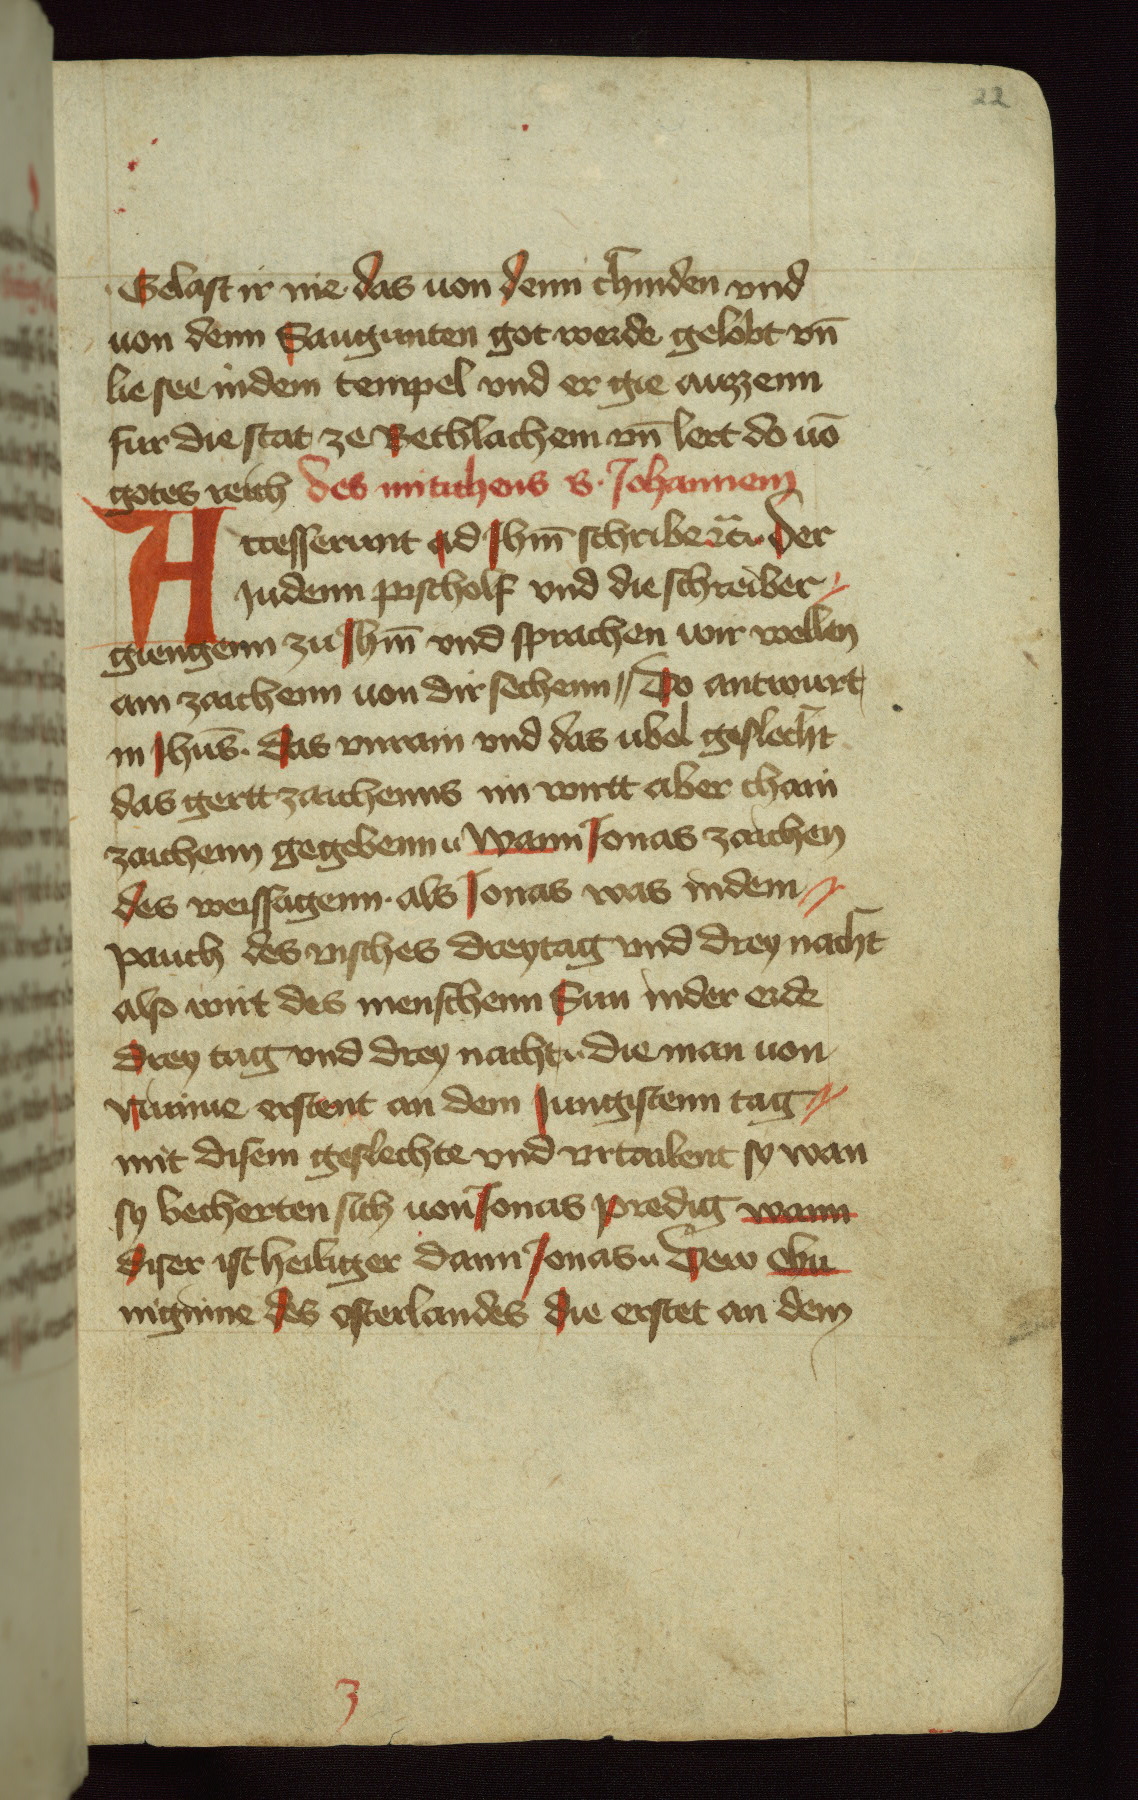 22
Gelast ir nie das uon denn chinden vnd
uon denn Saugunten got werde gelobt vn̄
lie see indem tempel vnd er gie auzzenn
fur die stat ze Bethlachem vn̄ lert do uō
gotes reich des mittichens s. Johannem
Accesserunt ad Jhm̄ schribe &c. Der
Judenn pischolf vnd die schreiber
giengenn zu Jhm̄ vnd sprachen wir wellen
ain zaichenn uon dir sechenn // Do antwurt
in Jhus̄. Das vnrain vnd das ubel geslecht
das gertt zaichenns im wirtt aber chain
zaichenn gegebenn Wann Jonas zaichen
des weissagenn. als Jonas was indem
pauch des visches drey tag vnd drey nacht
also wirt des menschenn Sun inder erde
drey tag vnd drey nacht die man uon
erstent an dem Jungistenn tag
mit disem geslechte vnd vrtailent sy wan
sy becherten sich uon Jonas predig wann
diser ist heiliger dann Jonas Dew chu
niginne des osterlandes die erstet an dem
3